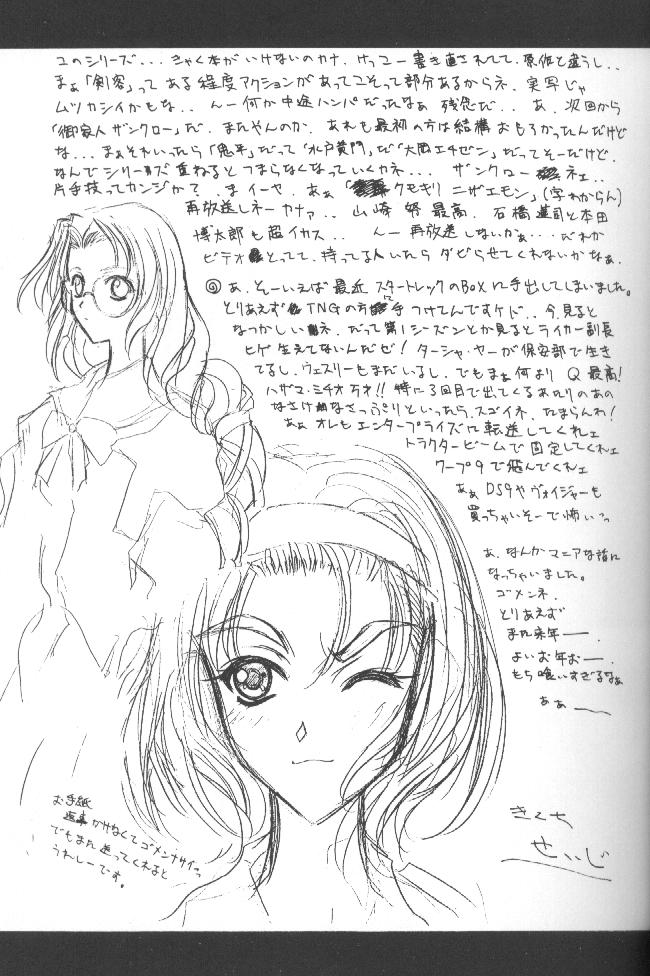 このシリーズ...きゃく本がいけないのカナ.けっこー書き直されてて.原作と違うし..
まぁ「剣客」って ある程度アクションがあってこそって部分あるからネ.実写じゃ
ムツカシイかもな.. んー何か中途ハンパだったなぁ 残念だ.. あ.次回から
「御家人 ザンクロー」だ.またやんのか.あれも最初の方は結構 おもろかったんだけど
な...まぁそれいったら「鬼平」だって「水戸黄門」だ「大岡エチゼン」だってそーだけど.
なんでシリーズ重ねると つまらなくなっていくカネ... ザンクロー ネェ..
片手技ってカンジかて゛.まイーヤ.あぁ「クモキリ ニザエモン」(字わからん)
再放送しネーカナァ.. 山崎努 最高. 石橋蓮司と本田
博太郎も超イカス.. んー再放送しないかぁ...だれか
ビデオとってて.持ってる人いたら ダビらせてくれないかなぁ.
◎ あ.そーいえば 最近 スタートレックのBOXに手出してしまいました。
とりあえず TNGの方に手つけてんですケド.. 今見ると
なつかしいネ.だって第1シーズンとか見るとライカー副長
ヒゲ生えてないんだぜ!ターシャ・ヤーが保安部で生き
てるし.ウェスリーもまだいるし.でもまぁ何より Q最高!
ハザマ・ミチオ万才!!特に3回目で出てくるあたりのあの
なさけなさっぷりといったら.スゴイネ.たまらんわ!
あぁ オレもエンタープライズに転送してくれェ
トラクタービームで固定してくれェ
ワープ9で飛んでくれェ
あぁ DS9やヴォイジャーも
買っちゃいそーで怖いっ
あ.なんかマニアな話に
なっちゃいました。
ゴメンネ.
とりあえず
また来年ー.
よいお年おー.
もち喰いすぎるなぁ
あぁー
お手紙
返事かけなくてゴメンナサイっ
でもまた送ってくれると
うれしーです。
きくち
せいじ